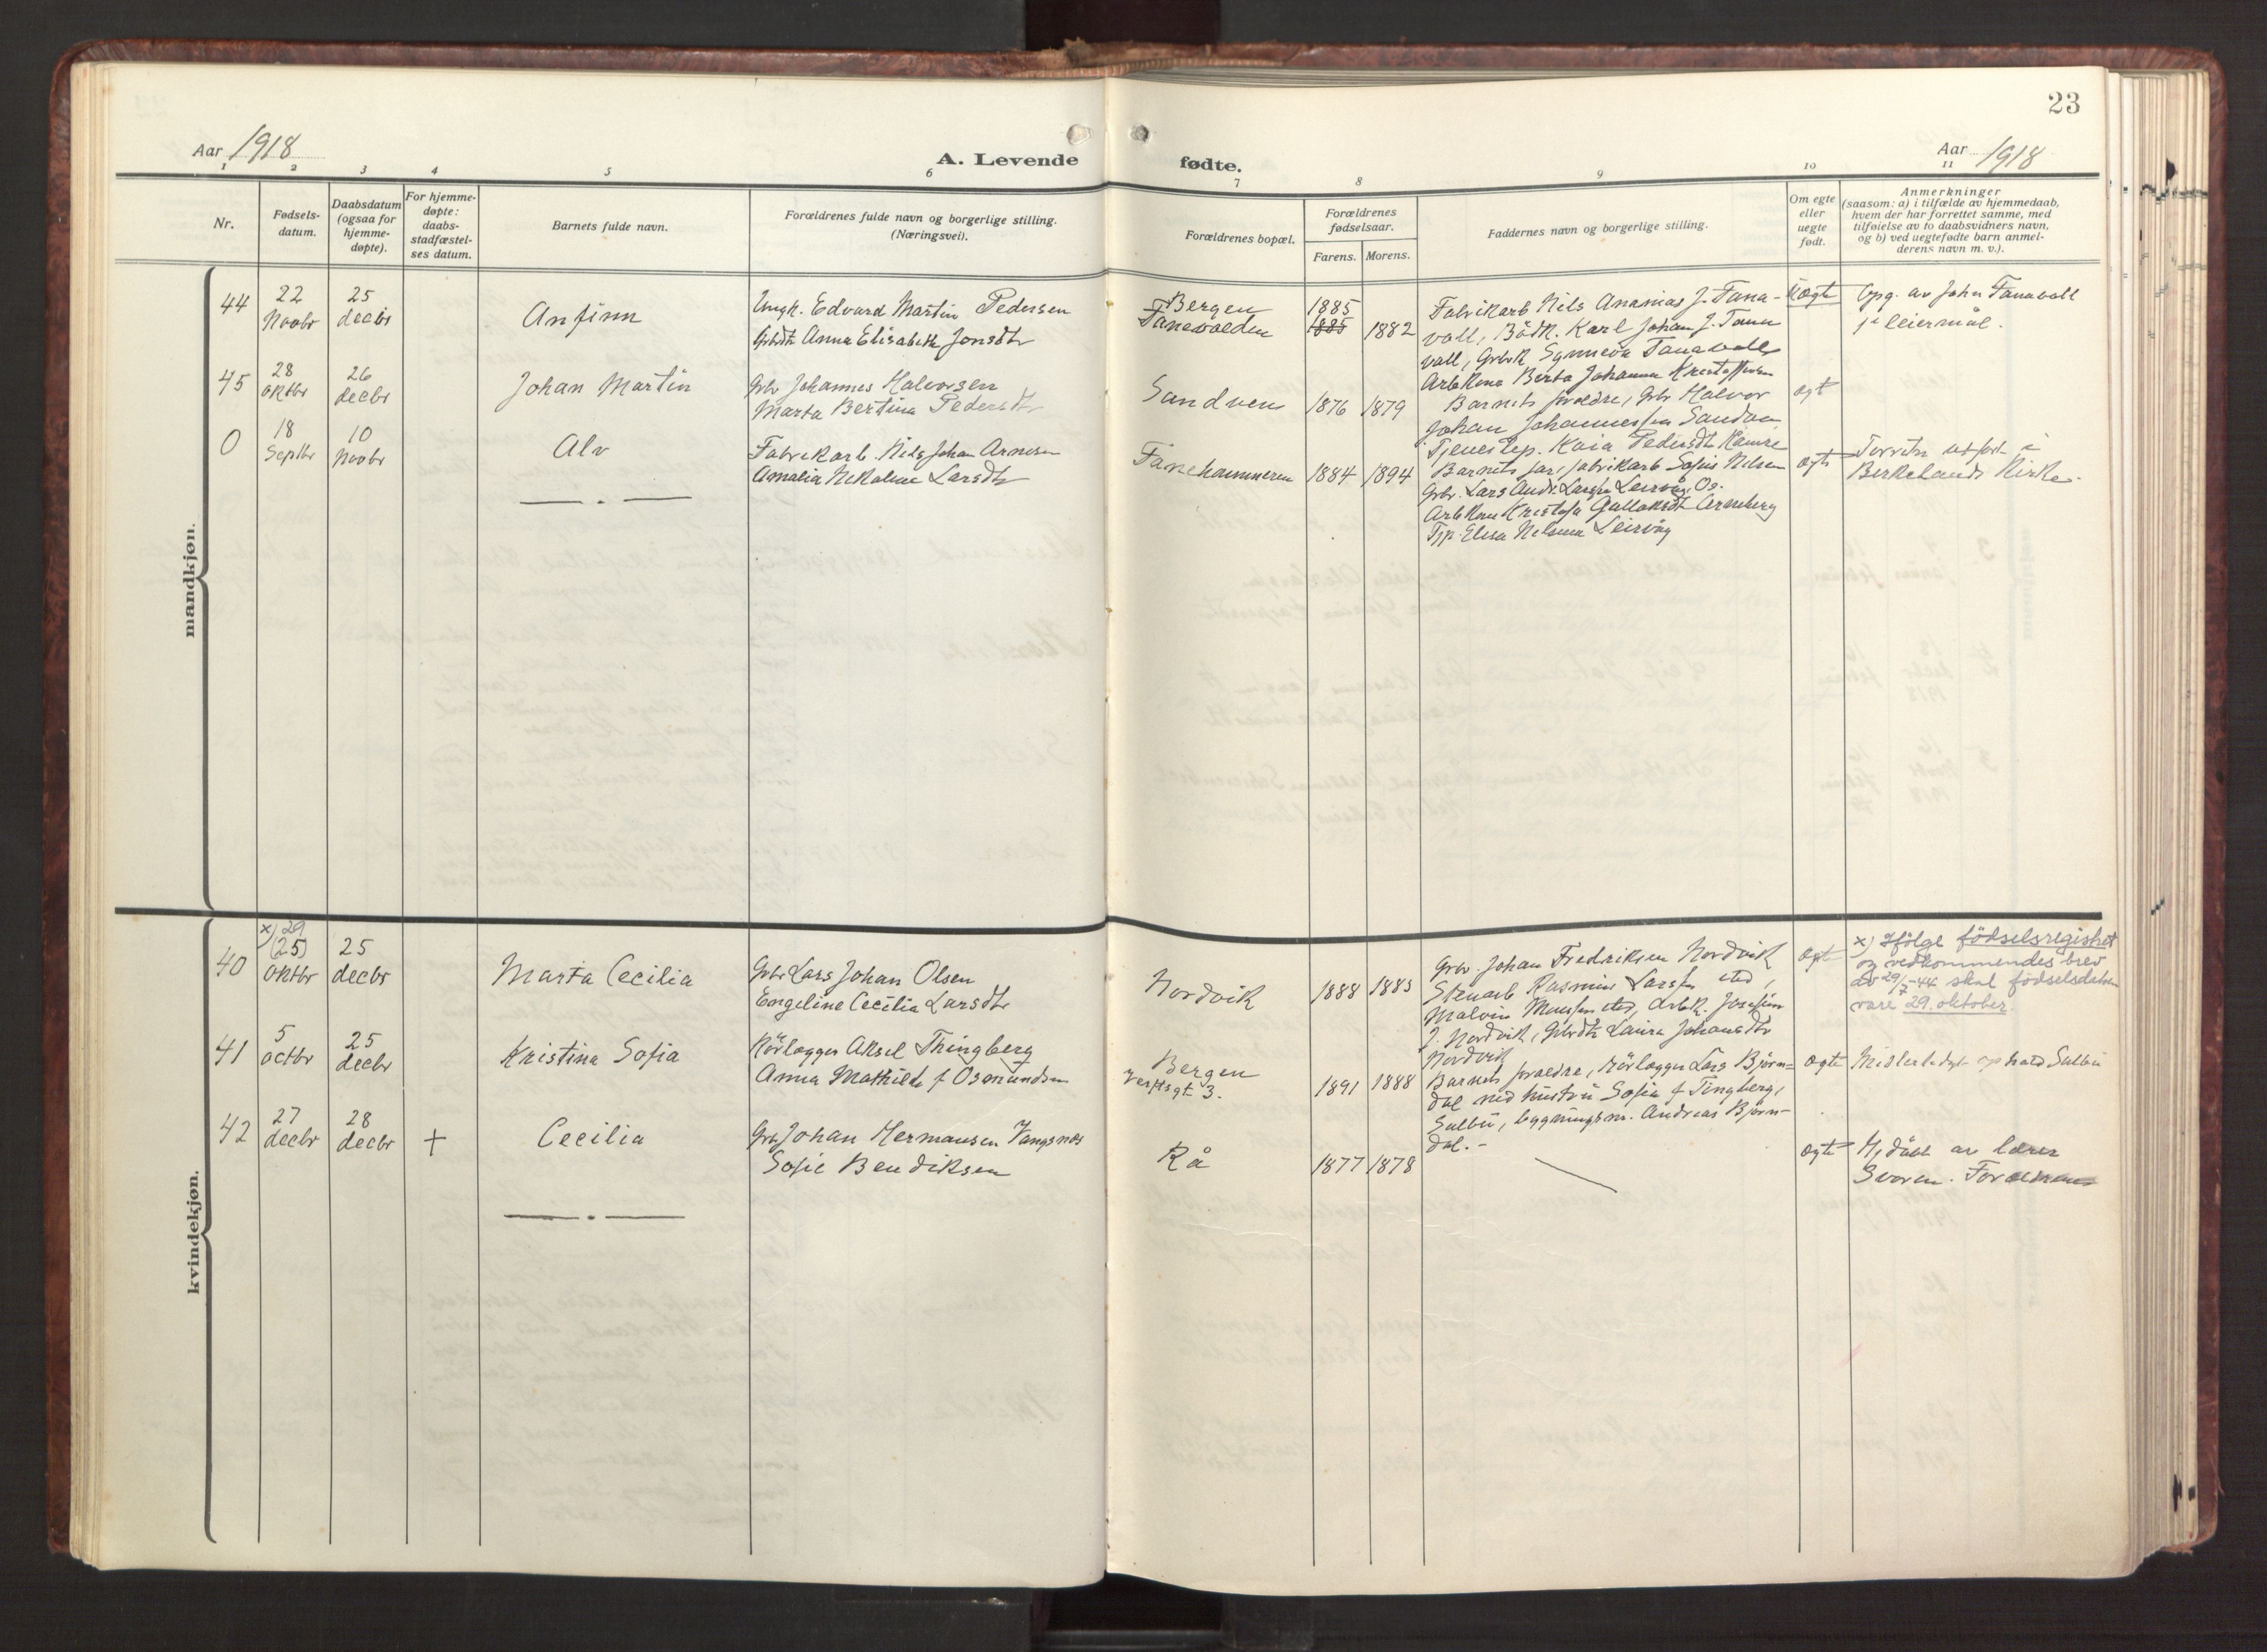 23
Aar 1918
A. Levende
fødte.
Aar 1918
1 2 3 4 5 6 7 8 9 10 11
Nr.
Fødsels-
datum.
Daabsdatum
(ogsaa for
hjemme-
døpte).
For hjemme-
døpte:
daabs-
stadfæstel-
ses datum.
Barnets fulde navn.
Forældrenes fulde navn og borgerlige stilling.
(Næringsvei).
Forældrenes bopæl.
Forældrenes
fødselsaar.
Farens. Morens.
Faddernes navn og borgerlige stilling.
Om egte
eller
uegte
født.
Anmerkninger
(saasom: a) i tilfælde av hjemmedaab,
hvem der har forrettet samme, med
tilføielse av to daabsvidners navn,
og b) ved uegtefødte barn anmel-
derens navn m. v.).
mandkjøn.
44
22
Novbr
25
decbr
Anfinn
Ungk. Edvard Martin Pedersen
Gbrdtr Anna Elisabeth Jonsdtr
Bergen
Tanevolden
1885
1885
1882
Fabrikarb Nils Ananias J. Tana-
vall, Bödk. Karl Johan J. Tana
vall, Gbrk Synneva Tanavall
Arbkona Berta Johanna
Uegte
Opg. av John Tanavall
1ste leiermål.
45
28
oktbr
26
decbr
Johan Martin
Gbr Johannes Halvorsen
Marta Bertina Pedersdtr
Sandven
1876
1879
Barnets foraeldre, Gbr Halvor
Johan Johannessen Sandven
Tjenestep. Kaia Pedersdtr
egt
0
18
Septbr
10
Novbr
Alv
Fabrikarb. Nils Johan Arnesen
Amalia Nikoline Larsdtr
Tanehammeren
1884
1894
Barnets far, fabrikarb Sofus Nilsen
Gbr. Lars Andr. Larsen Leirvåg, Os.
Arbkone Gullaksdtr Arneberg
Tjp. Elisa Nilsen Leirvåg
egte
Forretn utført i
Birkelands Kirke.
kvindekjøn.
40
x) 29
(25)
oktbr
25
decbr
Marta Cecilia
Gbr Lars Johan Olsen
Engeline Cecilia Larsdtr
Nordvik
1888
1883
Gbr. Johan Fredriksen Nordvik
Stenarb Rasmus Larsen std,
Malvin Monsen std, Arbk. Josefine
J. Nordvik, Gbrdtr Laura Johansdtr
Nordvik
egt
x) Ifølge fødselsregistret
og vedkommendes brev
av 29/7-44 skal fødselsdatoen
være 29. oktober.
41
5
octbr
25
decbr
Kristina Sofia
Rörlægger Aksel Thingberg
Anna Mathilde f Osmundsen
Bergen
Verftsgt 3.
1891
1888
Barnets foraeldre, rörlægger Lars Bjørn-
dal med hustru Sofia f Tingberg,
Sælbu, bygningsm. Andreas Bjørn-
dal.-
egte
Midlertidigt ophold Sælbu
42
27
decbr
28
decbr
+
Cecilia
Gbr Johan Hermansen Vangsnes
Sofie Bendiksen
Rå
1877
1878
egte
Hj.døbt av lærer
Svoren.